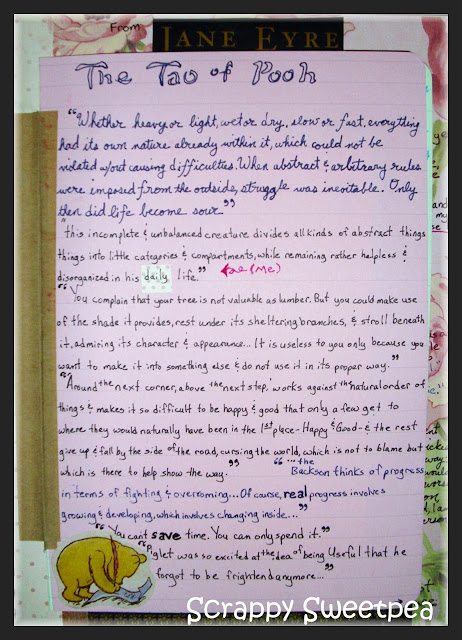 From
JANE EYRE
The Tao of Pooh
"Whether heavy or light, wet or dry, slow or fast, everything
had its own nature already within it, which could not be
violated w/out causing difficulties. When abstract & arbitrary rules
were imposed from the outside, struggle was inevitable. Only
then did life become sour."
"this incomplete & unbalanced creature divides all kinds of abstract things
things into little categories & compartments, while remaining rather helpless &
disorganized in his daily life." (Me)
"You complain that your tree is not valuable as lumber. But you could make use
of the shade it provides, rest under its sheltering branches, & stroll beneath
it, admiring its character & appearance... It is useless to you only because you
want to make it into something else & do not use it in its proper way."
"Around the next corner, above the next step,' works against the natural order of
things & makes it so difficult to be happy & good that only a few get to
where they would naturally have been in the 1st place - Happy & Good - & the rest
give up & fall by the side of the road, cursing the world, which is not to blame but
which is there to help show the way." "...the
Backson thinks of progress
in terms of fighting & overcoming... Of course, real progress involves
growing & developing, which involves changing inside..."
"You can't save time. You can only spend it."
"Piglet was so excited at the idea of being Useful that he
forgot to be frightend anymore..."
Scrappy Sweetpea